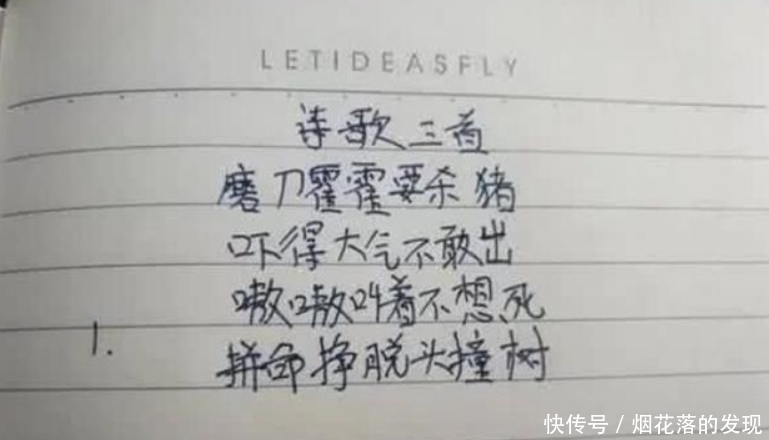 LETIDEASFLY
诗歌三首
磨刀霍霍要杀猪
吓得大气不敢出
嗷嗷叫着不想死
1.
拼命挣脱头撞树
快传号/烟花落的发现